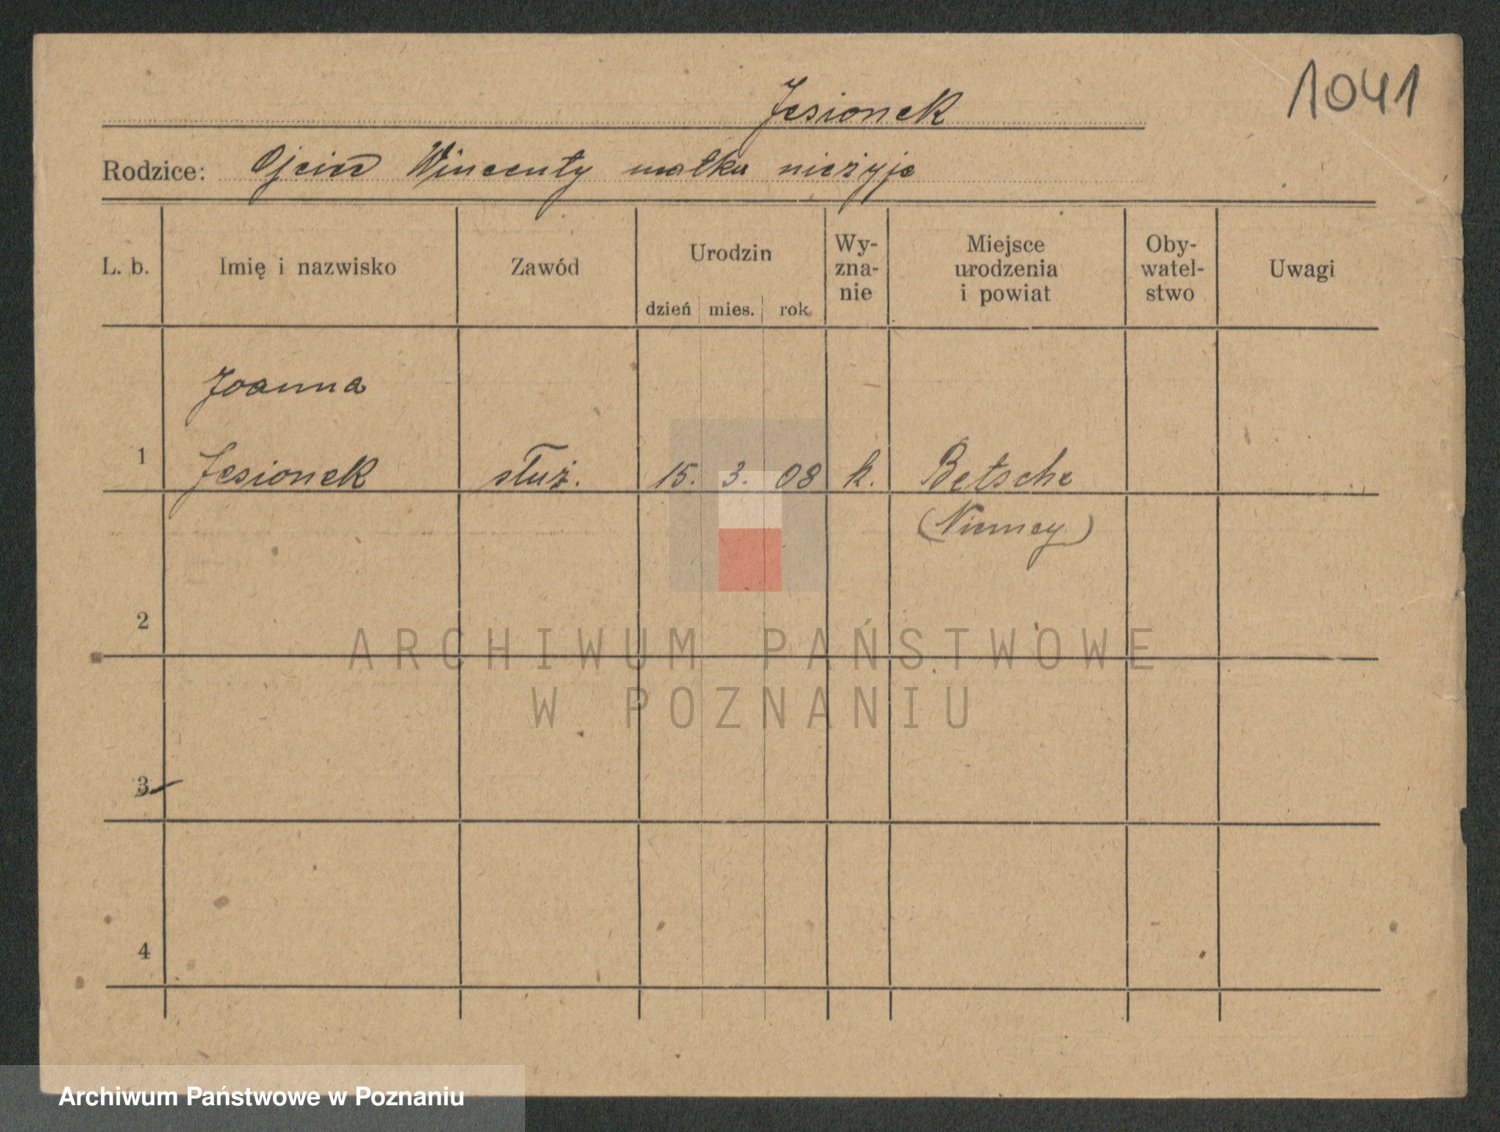 1041
Jesionek
Rodzice: Ojciec Wincenty matka nieżyje
L. b. Imię i nazwisko Zawód Urodzin dzień mies. rok Wy-zna-nie Miejsce urodzenia i powiat Oby-watel-stwo Uwagi
Joanna
1 Jesionek służ. 15. 3. 08 k. Betsche
(Niemcy)
2
ARCHIWUM PAŃSTWOWE
W POZNANIU
3
4
Archiwum Państwowe w Poznaniu